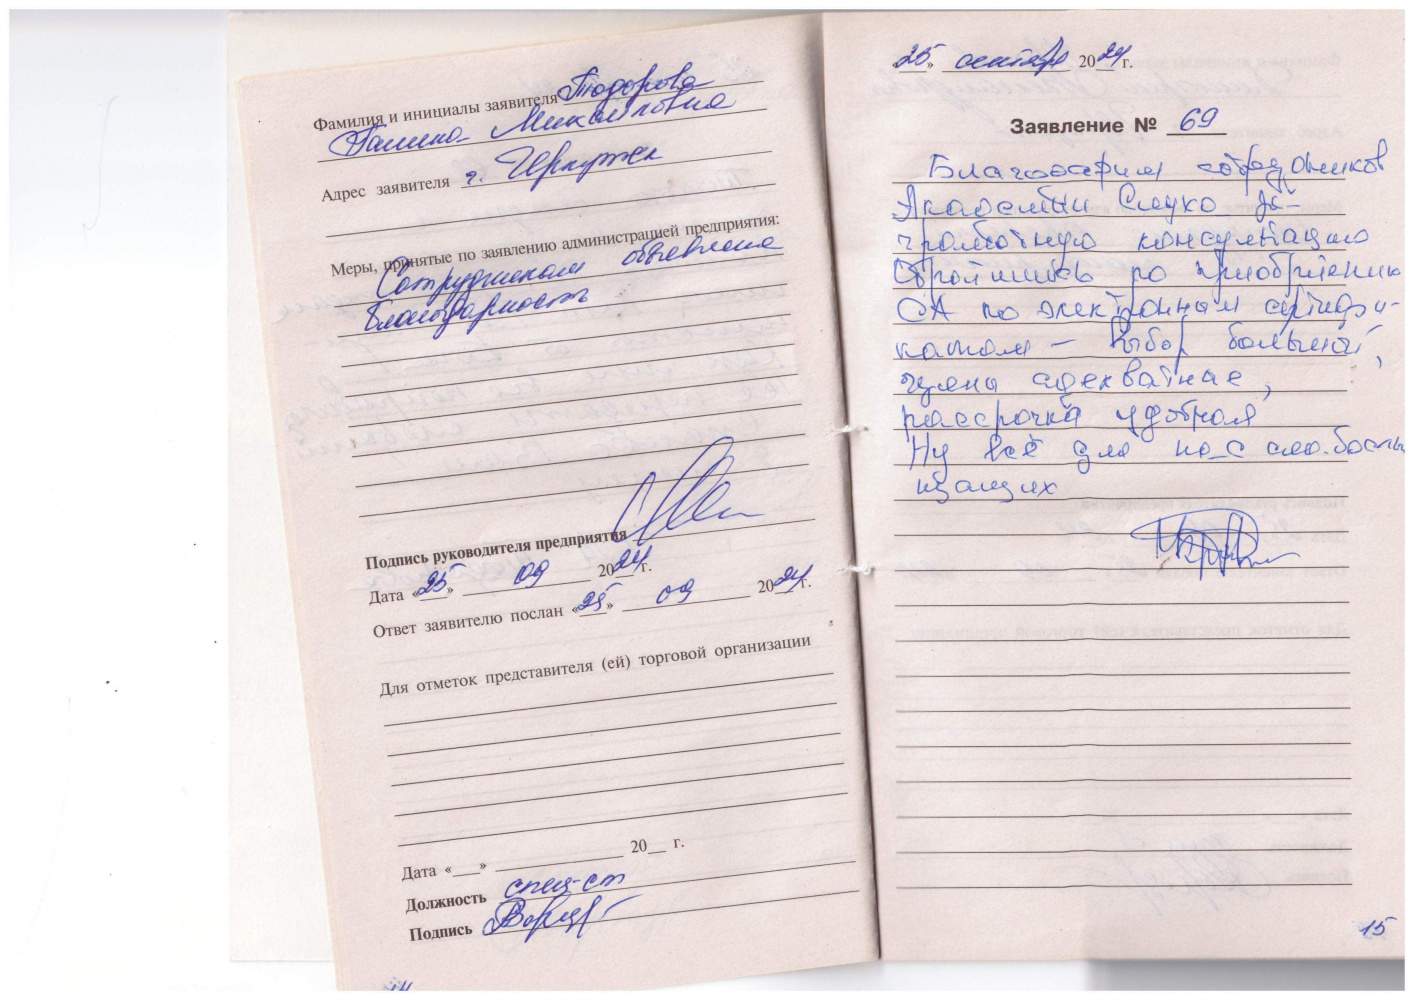 Фамилия и инициалы заявителя Тюдорова
Галина Михайловна
Адрес заявителя г. Иркутск
Меры, принятые по заявлению администрацией предприятия:
Сотрудникам объявлена
благодарность
Подпись руководителя предприятия
Дата «25» 09 2024 г.
Ответ заявителю послан «25» 09 2024 г.
Для отметок представителя (ей) торговой организации
Дата «___» 20__ г.
Должность спец-ст
Подпись
14
25» сентября 2024 г.
Заявление № 69
Благодарим сотрудников
Академии Слуха за
грамотную консультацию
Обратились по приобретению
СА по электронным сертифи-
катам – Выбор большой,
цены адекватные,
рассрочка удобная
Ну всё для нас слабослы
шащих
15